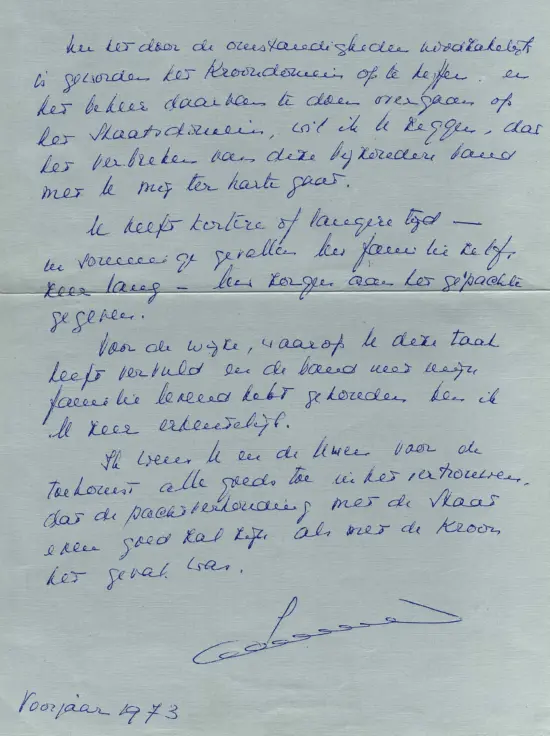 Nu het door de omstandigheden noodzakelijk
is geworden het Kroondomein op te heffen en
het beheer daarvan te doen overgaan op
het Staatsdomein, wil ik U zeggen, dat
het verbreken van deze bijzondere band
met U mij ter harte gaat.
U heeft kortere of langere tijd —
in sommige gevallen Uw familie zelfs
zeer lang — Uw zorgen aan het gepachte
gegeven.
Voor de wijze, waarop U deze taak
heeft vervuld en de band met mijn
familie levend hebt gehouden ben ik
U zeer erkentelijk.
Ik wens U en de Uwen voor de
toekomst alle goeds toe in het vertrouwen,
dat de pachtverhouding met de Staat
even goed zal zijn als met de Kroon
het geval was.
Voorjaar 1973